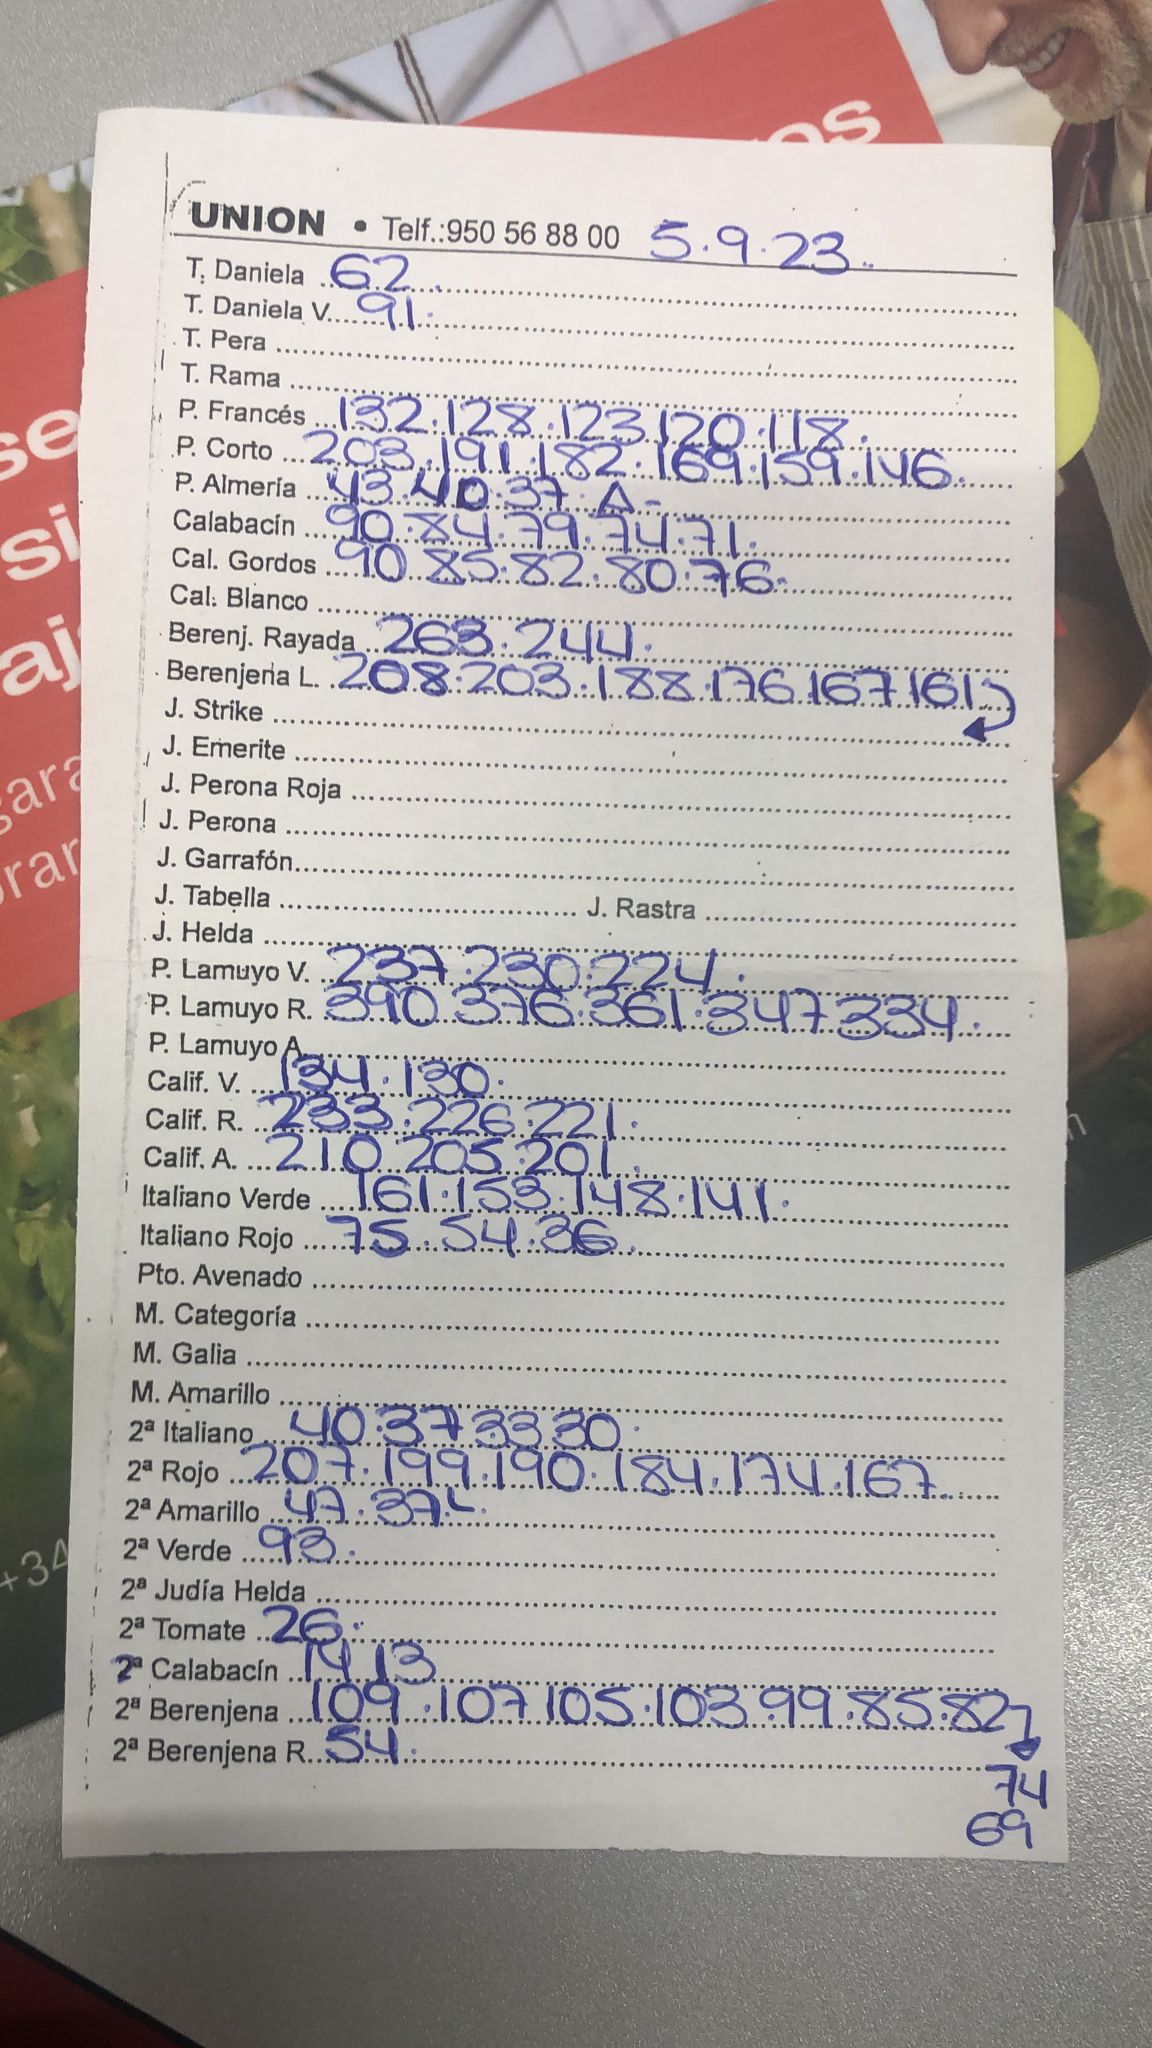 UNION • Telf.:950 56 88 00 5.9.23.
T. Daniela 62.
T. Daniela V. 91.
T. Pera
T. Rama
P. Francés 132.128.123.120.118.
P. Corto 203.191.182.169.159.146.
P. Almería 43.40.37. A-
Calabacín 90.84.79.74.71.
Cal. Gordos 90.85.82.80.76.
Cal. Blanco
Berenj. Rayada 263.244.
Berenjena L. 208.203.188.176.167.161
J. Strike
J. Emerite
J. Perona Roja
J. Perona
J. Garrafón
J. Tabella J. Rastra
J. Helda
P. Lamuyo V. 237.230.224.
P. Lamuyo R. 390.376.361.347.334.
P. Lamuyo A.
Calif. V. 134.130.
Calif. R. 233.226.221.
Calif. A. 210.205.201.
Italiano Verde 161.153.148.141.
Italiano Rojo 75.54.36.
Pto. Avenado
M. Categoría
M. Galia
M. Amarillo
2ª Italiano 40.37.33.30.
2ª Rojo 207.199.190.184.174.167.
2ª Amarillo 47.37.
2ª Verde 93.
2ª Judía Helda
2ª Tomate 26.
2ª Calabacín 14 13
2ª Berenjena 109.107.105.103.99.85.82
2ª Berenjena R. 54.
74
69
se
si
+34